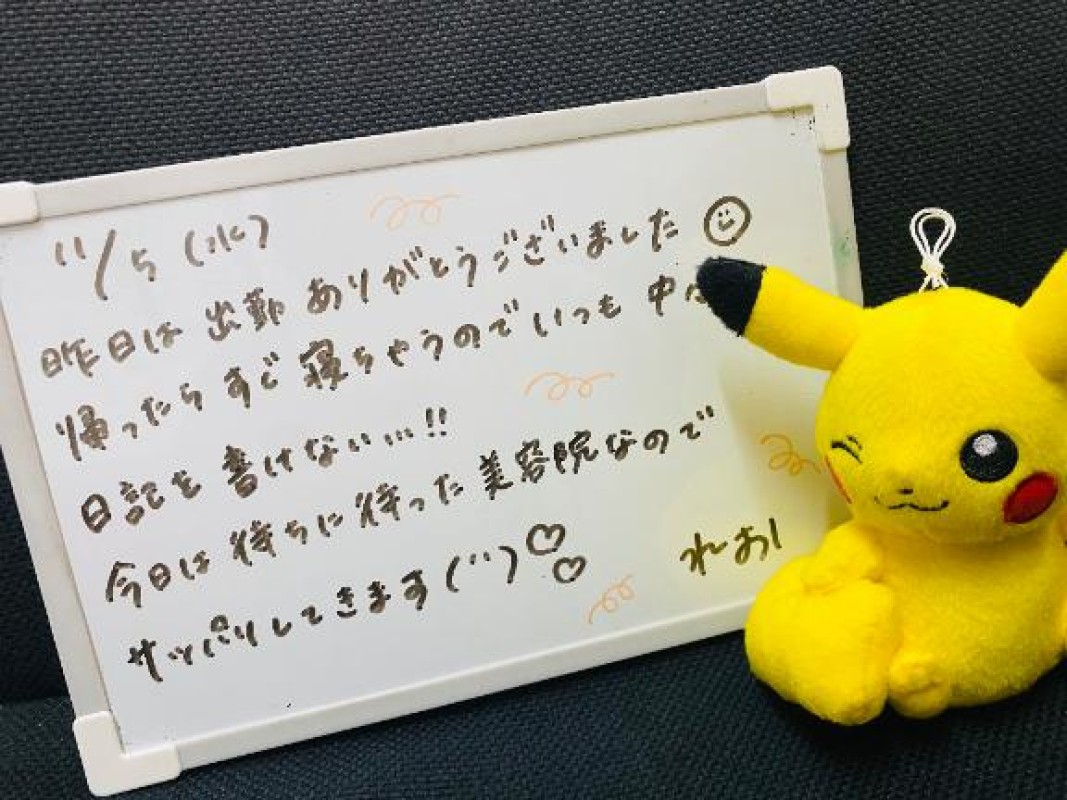 11/5(水)
昨日は出勤ありがとうございました
帰ったらすぐ寝ちゃうのでいつも中々
日記を書けない…!!
今日は待ちに待った美容院なので
サッパリしてきます(¨)♡♡
れお